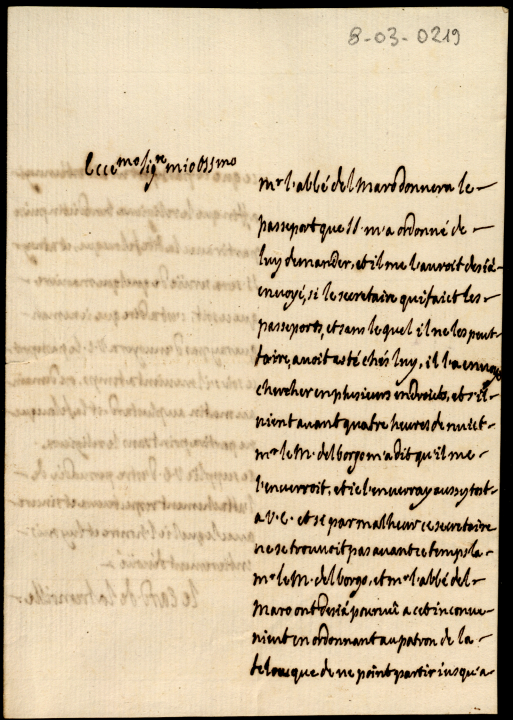 8-03-0219
Ecce^mo sig^re mio oss^mo
m^r l'abbé del Maro donnera le
passeport que SS. m'a ordonné de
luy demander, et il me l'auroit desià
envoyé, si le secretaire qui faict les
passeports, et sans lequel il ne les peut
faire, avoit esté chés luy, il l'a envoyé
chercher en plusieurs endroicts, et s'il
vient avant quatre heures de nuict
m^r le M. del borgo m'a dit qu'il me
l'enverroit, et ie l'enverray aussy tost
a V.E. et se par malheur ce secretaire
ne se trouvoit pas avant ce temps la
m^r le M. del borgo, et m^r l'abbé del
Maro ont desià pourvû a cet inconve
nient en ordonnant au patron de la
felouque de ne point partir iusqu'a